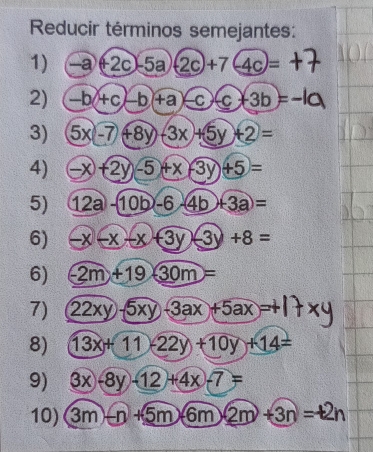 Reducir términos semejantes:
1) -a +2c -5a -2c +7 -4c = +7
2) -b +c -b +a -c -c +3b = -1a
3) 5x -7 +8y -3x +5y +2 =
4) -x +2y -5 +x -3y +5 =
5) 12a -10b -6 -4b +3a =
6) -x -x -x +3y -3y +8 =
6) -2m +19 -30m =
7) 22xy -5xy -3ax +5ax =+17xy
8) 13x+ 11 -22y +10y +14=
9) 3x -8y -12 +4x -7 =
10) 3m -n +5m -6m -2m +3n =+2n